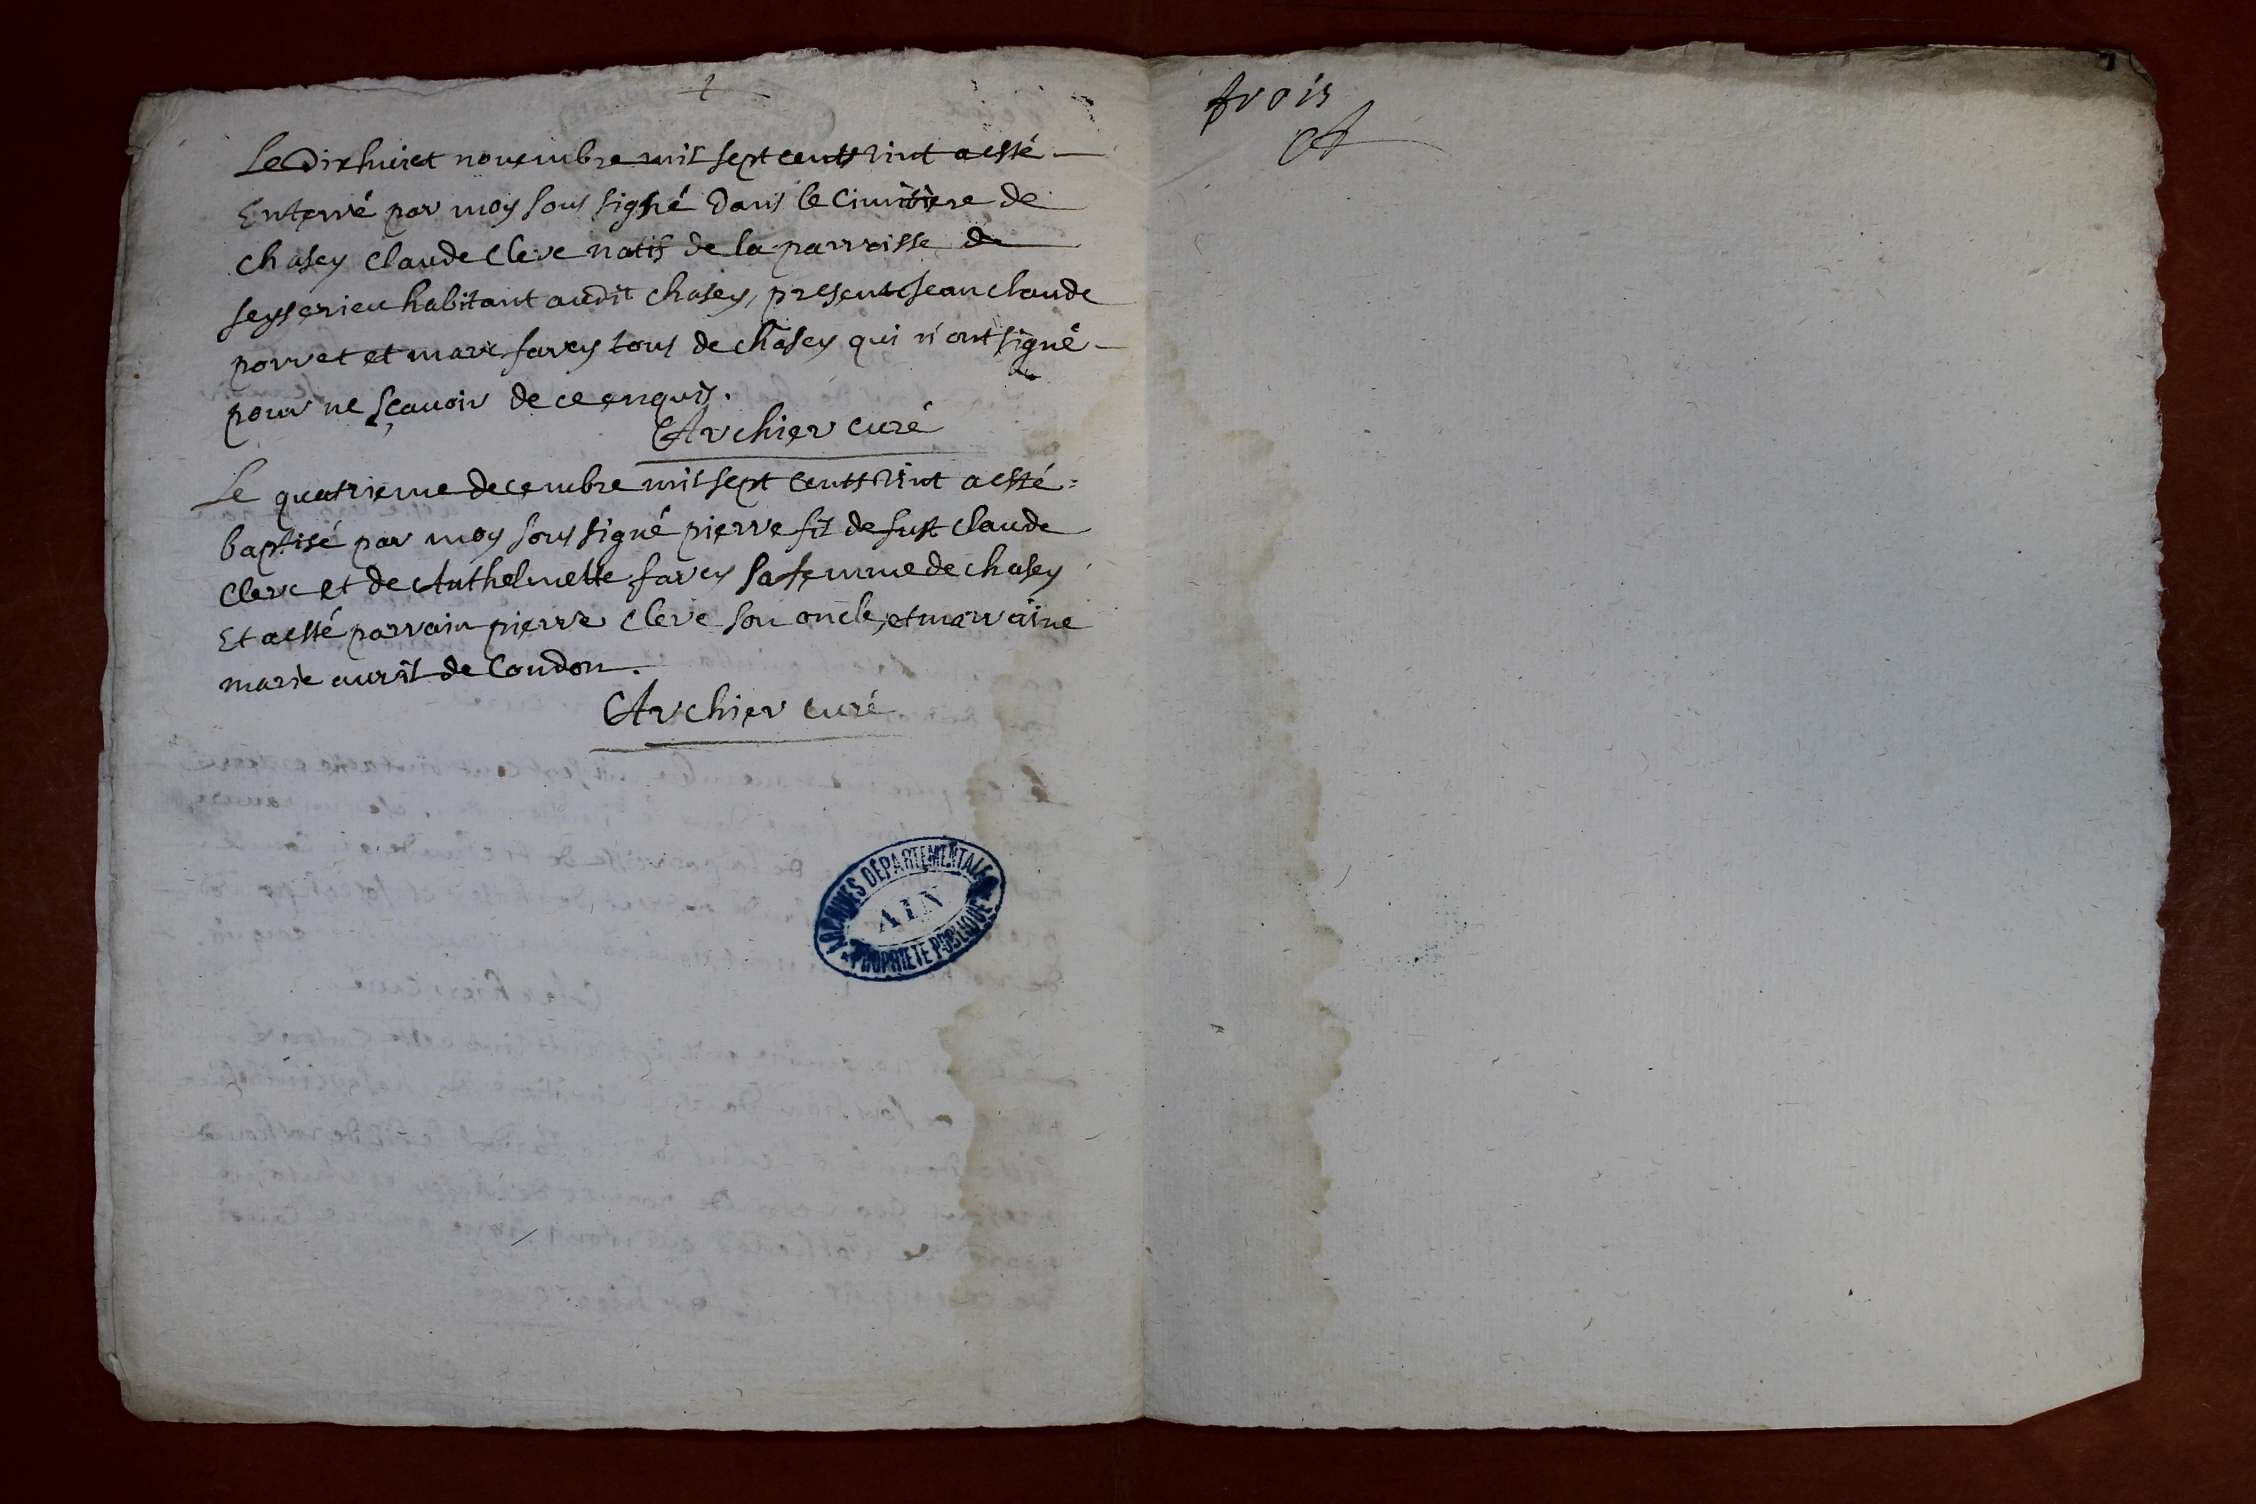 Le Dix huict novembre mil sept cents vint a esté
Enterré par moy sous signé dans le Cimitiere de
chasey claude Clerc natif de la parroisse de
seyserieu habitant audit chasey, present Jean claude
porret et marc favey tous de chasey qui n'ont signé
pour ne sçavoir de ce enquis.
Archier curé
Le quatrieme decembre mil sept cents vint a esté
baptisé par moy sous signé pierre fil de fust claude
Clerc et de Anthelmette favey sa femme de chasey
Et a esté parrain pierre Clerc son oncle, et marraine
marie de Condon.
Archier curé
ARCHIVES DÉPARTEMENTALES
AIN
PROPRIETE PUBLIQUE
trois